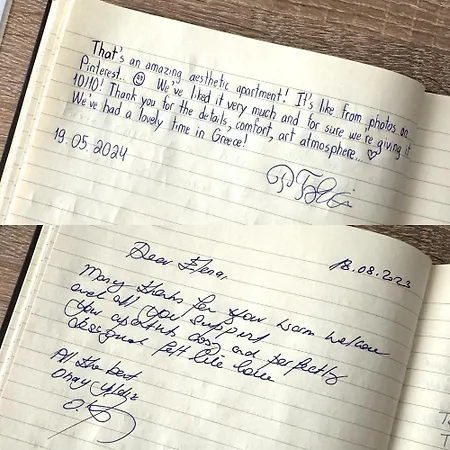 That's an amazing aesthetic apartment! It's like from photos on
Pinterest.. ☺ We've liked it very much and for sure we're giving it
10/10! Thank you for the details, comfort, art atmosphere... ♡
We've had a lovely time in Greece!
19.05.2024
Dear Elena,
18.08.2023
Many thanks for your warm welcome
and all your support
Your apartment cosy and perfectly
designed felt like home
All the best